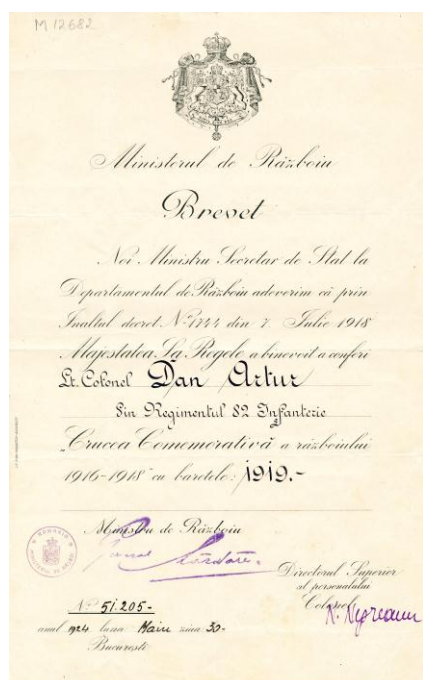 M 12682
Ministerul de Războiu
Brevet
Noi Ministru Secretar de Stat la
Departamentul de Războiu adeverim că prin
Inaltul decret No. 1744 din 7. Iulie 1918
Majestatea Sa Regele a binevoit a conferi
Lt. Colonel Dan Artur
din Regimentul 82 Infanterie
„Crucea Comemorativă a războiului
1916-1918" cu baretele: 1919.-
Ministru de Războiu
General Mărdărescu
Directorul Superior
al personalului
Colonel
N. Negreanu
No. 51.205-
anul 1924 luna Maiu ziua 30-
Bucuresti